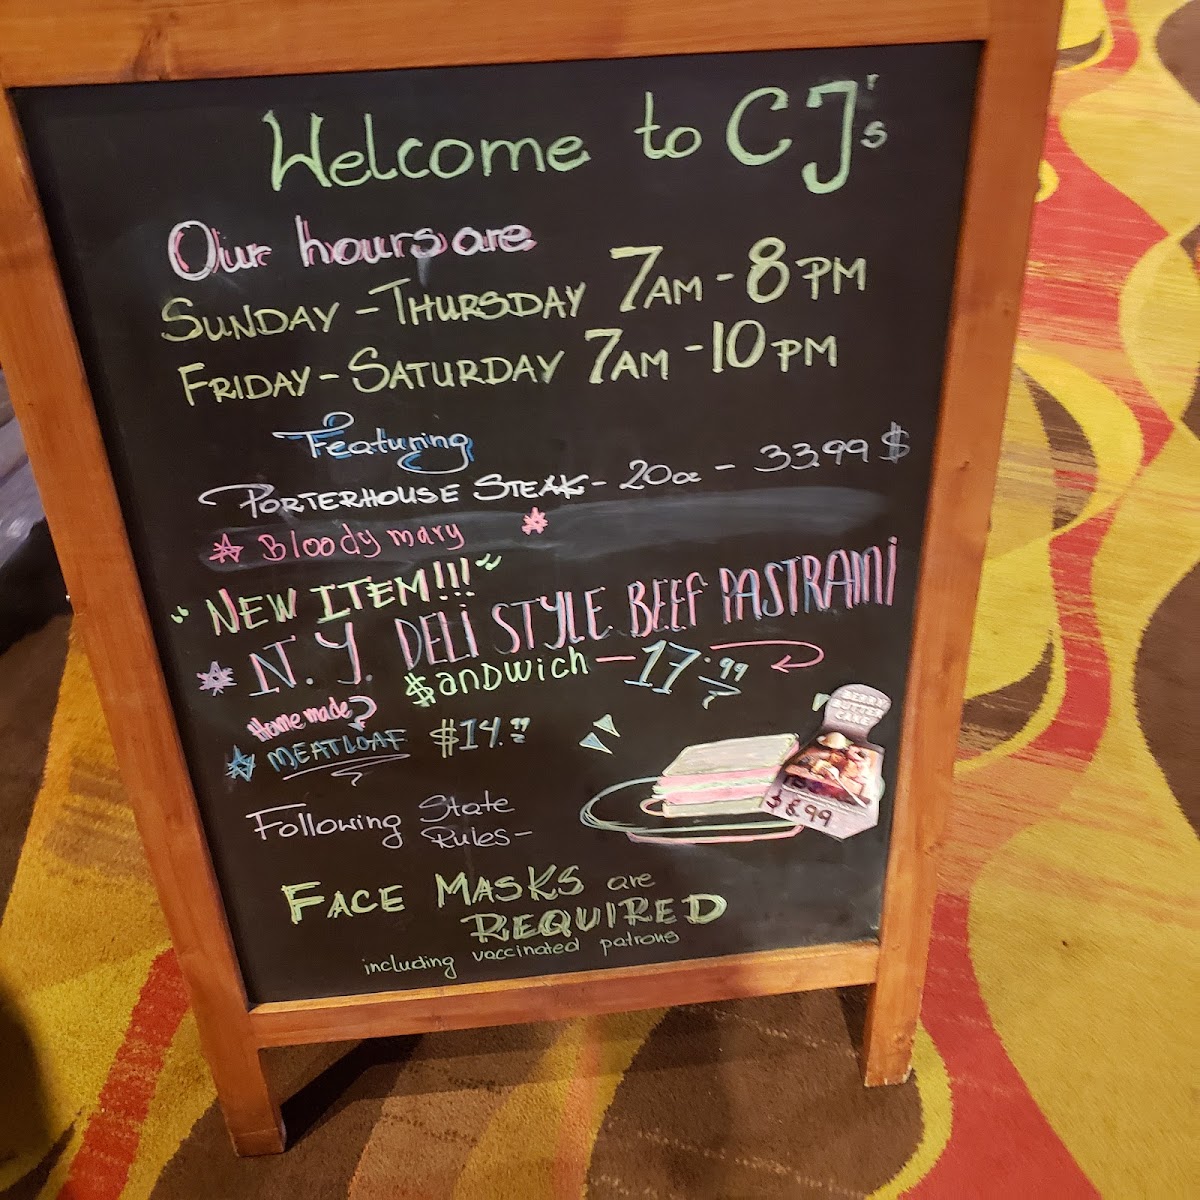 Welcome to CJ's
Our hours are
SUNDAY - THURSDAY 7AM - 8PM
FRIDAY - SATURDAY 7AM - 10PM
Featuring
PORTERHOUSE STEAK - 20oz - 33.99 $
Bloody mary
"NEW ITEM!!!"
N.Y. DELI STYLE BEEF PASTRAMI
$ANDWICH - 17.99
Home made
MEATLOAF $14.99
BERRY
BUTTER
CAKE
$8.99
Following State
Rules -
FACE MASKS are
REQUIRED
including vaccinated patrons